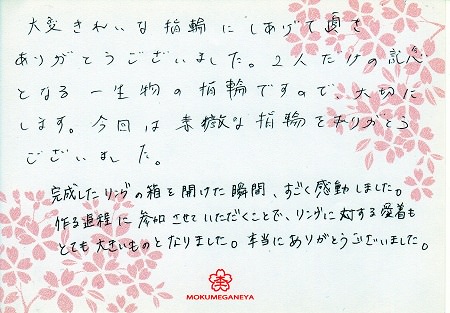 大変きれいな指輪にしあげて頂き
ありがとうございました。2人だけの記念
となる一生物の指輪ですので、大切に
します。今回は素敵な指輪をありがとう
ございました。
完成したリングの箱を開けた瞬間、すごく感動しました。
作る過程に参加させていただくことで、リングに対する愛着も
とても大きいものとなりました。本当にありがとうございました。
MOKUMEGANEYA